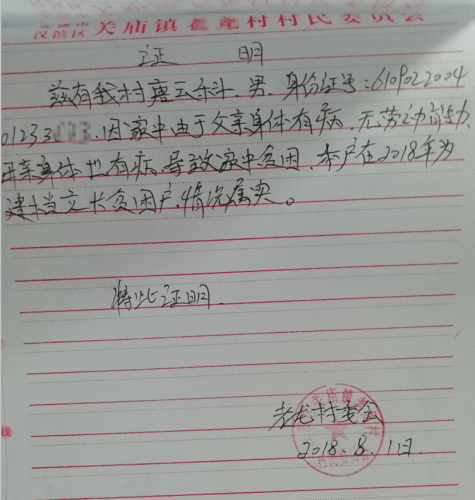 汉滨区关庙镇老龙村村民委员会
证 明
兹有我村唐云乐斗,男,身份证号:6109022004
01233 ,因家中由于父亲身体有病,无劳动能力
母亲身体也有病,导致家中贫困,本户在2018年为
建档立卡贫困户,情况属实。
特此证明.
老龙村委会
2018.8.1日.